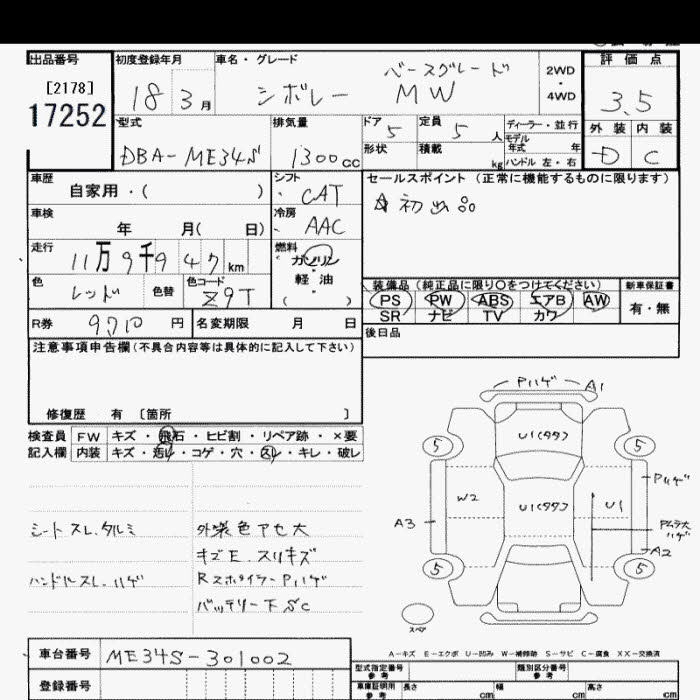 出品番号
[2178]
17252
初度登録年月
18 3 月
車名・グレード
ベースグレード
シボレー MW
2WD
・
4WD
評価点
3.5
外装 内装
D C
型式
DBA-ME34S
排気量
1300 cc
ドア 5
定員 5 人
形状
積載 kg
ディーラー・並行
モデル年式 年
ハンドル 左・右
車歴
自家用・( )
シフト
CAT
セールスポイント (正常に機能するものに限ります)
初出品
車検
年 月( 日)
冷房
AAC
走行
11万9千947 km
燃料
ガソリン
・
軽油
( )
色
レッド
色替
色コード
Z9T
装備品 (純正品に限り○をつけてください)
PS PW ABS エアB AW
SR ナビ TV カワ
新車保証書
有・無
R券 9710 円
名変期限 月 日
後日品
注意事項申告欄(不具合内容等は具体的に記入して下さい)
修復歴 有 〔箇所 〕
検査員 FW キズ・飛石・ヒビ割・リペア跡・×要
記入欄 内装 キズ・汚レ・コゲ・穴・スレ・キレ・破レ
シートスレ.タルミ
ハンドルスレ.ハゲ
外装色アセ大
キズE.スリキズ
RスポイラーPハゲ
バッテリー下SC
Pハゲ A1
U1(タタ)
5 5
W2
U1(タタ)
U1
Pハゲ
A3
Pムラ大
ハゲ
A2
5 5
スペア
A－キズ E－エクボ U－凹み W－補修跡 S－サビ C－腐食 XX－交換済
車台番号 ME34S-301002
登録番号
型式指定番号
参考
類別区分番号
参考
車庫証明用
参考
長さ cm
幅 cm
高さ cm